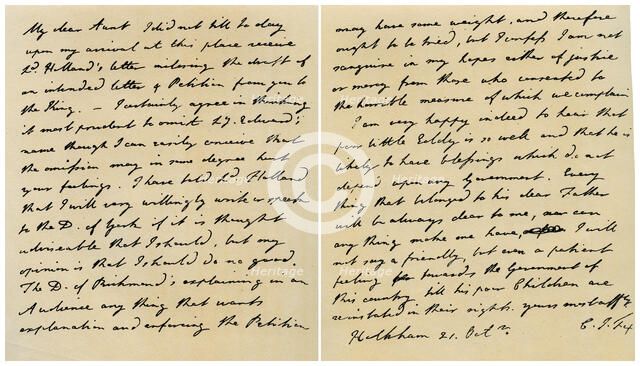 My dear Aunt I did not till to day
upon my arrival at this place receive
Ld. Holland's letter inclosing the draft of
an intended letter & Petition from you to
the King. — I certainly agree in thinking
it most prudent to omit Ld. Edward's
name though I can easily conceive that
the omission may in some degree hurt
your feelings. I have told Ld. Holland
that I will very willingly write or speak
to the D. of York if it is thought
adviseable that I should, but my
opinion is that I should do no good.
The D. of Richmond's explaining in an
Audience any thing that wants
explanation and enforcing the Petition
may have some weight, and therefore
ought to be tried, but I confess I am not
sanguine in my hopes either of justice
or mercy from those who consented to
the horrible measure of which we complain
I am very happy indeed to hear that
poor little Eddy is so well and that he is
likely to have blessings which do not
depend upon any Government. Every
thing that belonged to his dear Father
will be always dear to me, nor can
any thing make me have, I will
not say a friendly, but even a patient
feeling towards the Government of
this country till his poor Children are
reinstated in their rights. yours most affly
Holkham 21. Octr. C. J. Fox
Heritage
Heritage
Heritage
Heritage